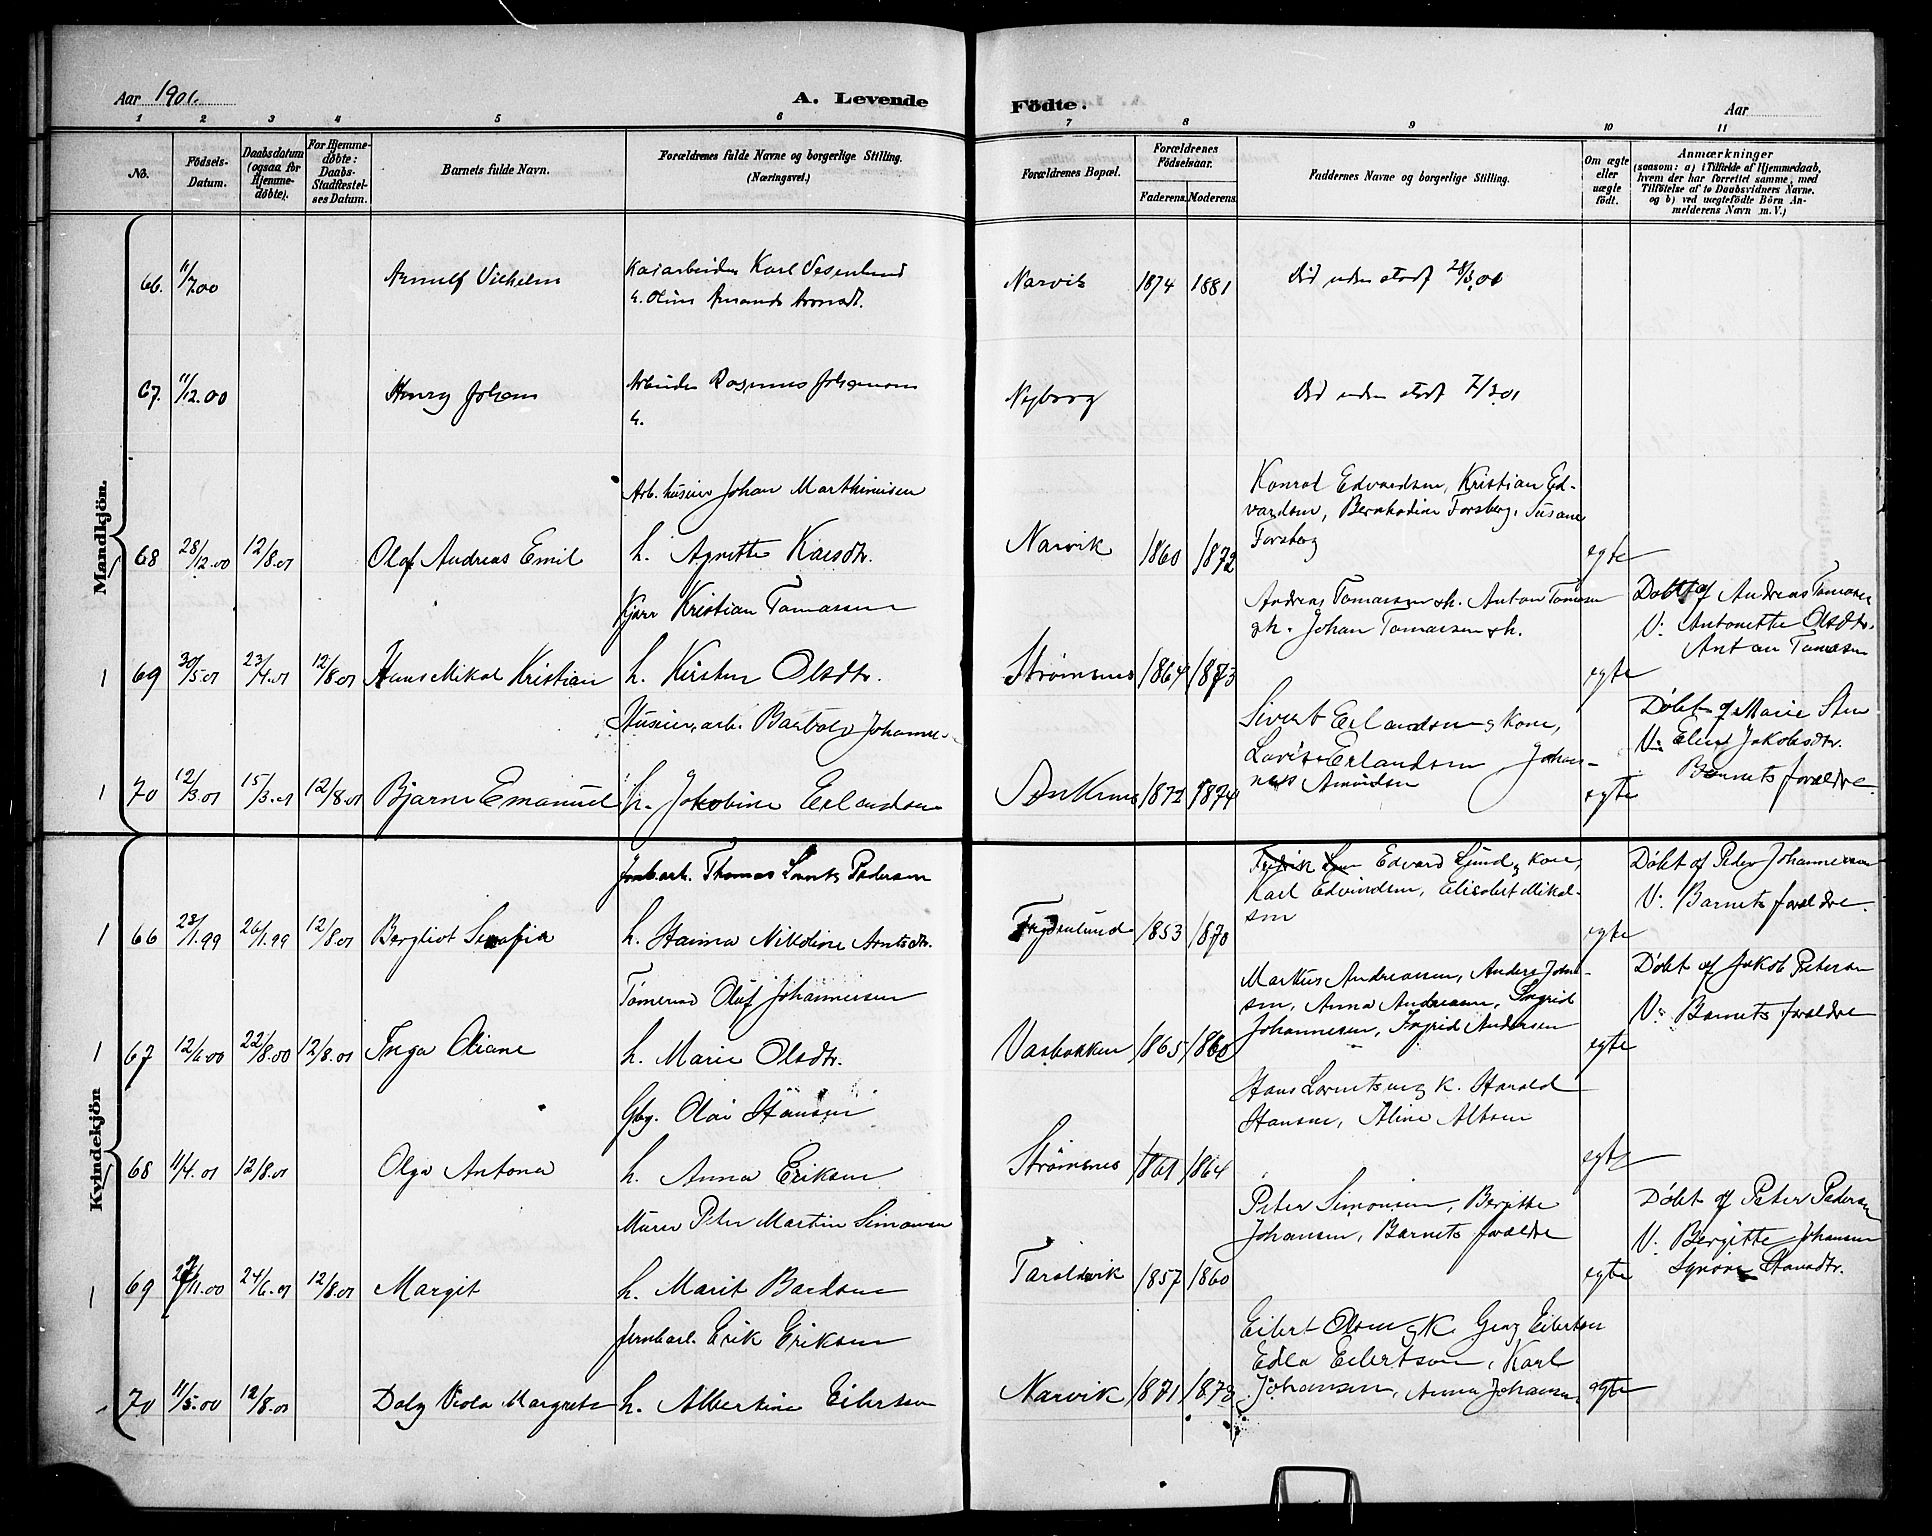 Aar 1901.
A. Levende
Födte.
Aar
1 2 3 4 5 6 7 8 9 10 11
No.
Födsels-Datum.
Daabsdatum (ogsaa for Hjemme-døbte).
For Hjemme-døbte: Daabs-Stadfæstel-ses Datum.
Barnets fulde Navn.
Forældrenes fulde Navne og borgerlige Stilling. (Næringsvei.)
Forældrenes Bopæl.
Forældrenes Födselsaar.
Faderens. Moderens.
Faddernes Navne og borgerlige Stilling.
Om ægte eller uægte født.
Anmærkninger
(saasom: a) i Tilfælde af Hjemmedaab, hvem der har forrettet samme, med Tilföielse af to Daabsvidners Navne. og b) ved uægtefödte Börn An-melderens Navn m. V.)
Mandkjön.
66. 11/7.00 Arnulf Vilhelm
Karl
Narvik 1874 1881 Död uden stadf 28/3.00
67. 11/12.00 Henry Johan
Arbeider Rasmus
Nyborg
Död uden stadf 7/3.01
Arb. husier Johan Marthinusen
68 28/12.00 12/8.01 Olaf Andreas Emil h. Agnette
Narvik 1860 1872
Konrad Edvardsen, Kristian Ed-
vardsen, Bernhardine Forsberg, Susane
Forsberg
egte
Kristian Tomassen
1 69 30/5.01 23/7.01 12/8.01 Hans Mikal Kristian h. Kirsten Olsdtr.
Strømsnes 1864 1873
Andreas Tomassen gh. Anton Tomasen
gh. Johan Tomassen gh.
egte
Döbt af Andreas Tomasen
V: Antonette Olsdtr.
Anton Tomasen
1 70 12/3.01 15/3.01 12/8.01 Bjarne Emanuel h. Jakobine Erlandsen
1872 1874
Sivert Erlandsen g Kone,
Lovise Erlandsen Johan-
nes Amundsen
egte
Döbt af Marie
V: Jakobsdtr.
Barnets forældre.
Kvindekjön
Thomas Pedersen
1 66 23/11.99 26/11.99 12/8.01 Bergliot Serafia h. Nikoline Arntsdtr.
Frydenlund 1853 1870
Edvard Ljund g kone,
Karl Edvindsen, Elisabet Mikal-
sen
egte
Döbt af Peder Johannessen
V: Barnets forældre.
Tömmermd Oluf Johannesen
1 67 12/6.00 22/8.00 12/8.01 Inga Oliane h. Marie Olsdtr.
Vasbakken 1865 1860
Markus Andreassen, Anders Johan-
sen, Anna Andreasen, Ingrid
Johannesen, Ingrid Andersen
egte
Döbt af Jakob Petersen
V: Barnets forældre
Gbg. Olai Hansen
68 11/4.01 12/8.01 Olga Antona h. Anna Eriksen
Strømsnes 1861 1864
Hans Lorentsen g K. Harald
Hansen, Aline Altsen
egte
Murer Peter Martin Simonsen
1 69 27/11.00 24/6.01 12/8.01 Margit h. Marit Bardsen
Taraldsvik 1857 1860
Peter Simonsen, Bergitte
Johansen, Barnets forældre
egte
Döbt af Peter Pedersen
V: Bergitte Johansen
Hansdtr.
Jernbarb. Erik Eriksen
70 11/5.00 12/8.01 Viola Margrete h. Albertine Eilertsen
Narvik 1871 1873
Eilert Olsen g K. Georg Eilertsen
Edla Eilertsen, Karl
Johansen, Anna Johansen,
egte